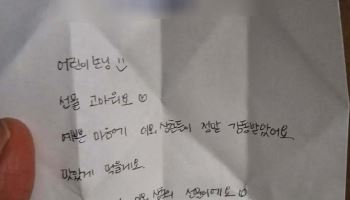 어린이 손님
선물 고마워요
예쁜 마음에 이모, 삼촌들이 정말 감동받았어요
맛있게 먹을게요
이모 삼촌